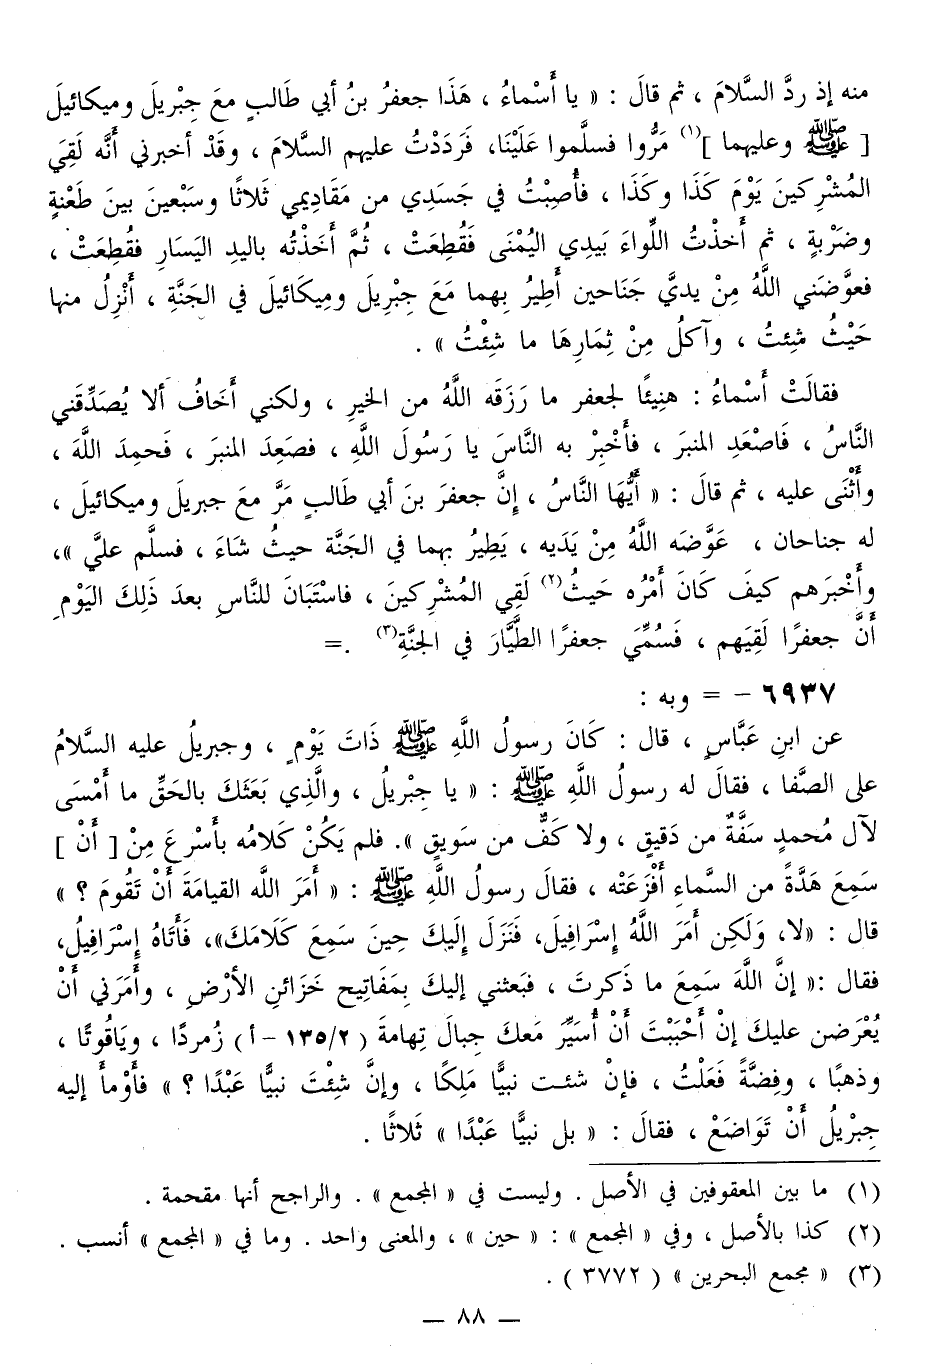 منه إذ ردَّ السَّلامَ ، ثم قالَ : « يا أَسْماءُ ، هَذَا جعفرُ بنُ أبي طَالبٍ معَ جِبْريلَ وميكائيلَ
[ ﷺ وعليهما ]⁽١⁾ مَرُّوا فسلَّموا عَلَيْنَا، فَرَدَدْتُ عليهم السَّلامَ ، وقَدْ أخبرني أنَّه لَقِيَ
المُشْرِكينَ يَوْمَ كَذَا وكَذَا ، فأُصِبْتُ في جَسَدِي من مَقَادِيمي ثَلاثًا وسَبْعينَ بينَ طَعْنةٍ
وضَرْبةٍ ، ثم أخذْتُ اللِّواءَ بَيدِي اليُمْنَى فَقُطِعَتْ ، ثُمَّ أَخَذْتُه باليدِ اليَسَارِ فقُطِعَتْ ،
فعوَّضَني اللَّهُ مِنْ يديَّ جَنَاحين أَطِيرُ بهما مَعَ جِبْريلَ ومِيكائيلَ في الجَنَّةِ ، أَنْزِلُ منها
حَيْثُ شِئتُ ، وآكلُ مِنْ ثِمَارِهَا ما شِئْتُ » .
فقالَتْ أَسْماءُ : هنِيئًا لجعفر ما رَزَقَه اللَّهُ من الخيرِ ، ولكني أَخَافُ ألا يُصَدِّقَني
النَّاسُ ، فَاصْعَدِ المنبرَ ، فأَخْبِرْ به النَّاسَ يا رَسُولَ اللَّهِ ، فصَعِدَ المنبرَ ، فَحمِدَ اللَّهَ ،
وأَثْنَى عليه ، ثم قالَ : « أَيُّهَا النَّاسُ ، إنَّ جعفرَ بنَ أبي طَالبٍ مَرَّ معَ جبريلَ وميكائيلَ ،
له جناحان ، عَوَّضَه اللَّهُ مِنْ يَدَيه ، يَطِيرُ بهما في الجَنَّة حيثُ شَاءَ ، فسلَّم عليَّ »،
وأَخْبَرَهم كيفَ كَانَ أَمْرُه حَيثُ⁽٢⁾ لَقِي المُشْرِكينَ ، فاستَبَانَ للنَّاسِ بعدَ ذَلِكَ اليَوْمِ
أنَّ جعفرًا لَقِيَهم ، فَسُمِّيَ جعفرًا الطَّيَّارَ في الجَنَّةِ⁽٣⁾ .=
٦٩٣٧ - = وبه :
عن ابنِ عَبَّاسٍ ، قال : كَانَ رسولُ اللَّهِ ﷺ ذَاتَ يَوْمٍ ، وجبريلُ عليه السَّلامُ
على الصَّفا ، فقالَ له رسولُ اللَّهِ ﷺ : « يا جِبْريلُ ، والَّذِي بَعَثَكَ بالحَقِّ ما أَمْسَى
لآل مُحمدٍ سَفَّةٌ من دَقيقٍ ، ولا كَفٌّ من سَويقٍ ». فلم يَكُنْ كَلامُه بأَسْرعَ مِنْ [ أنْ ]
سَمِعَ هَدَّةً من السَّماءِ أَفْزَعَتْه ، فقالَ رسولُ اللَّهِ ﷺ : « أَمَرَ الله القيامَةَ أَنْ تَقُومَ ؟ »
قال : «لا، وَلَكِن أَمَرَ اللَّهُ إسْرافِيلَ، فَنَزَلَ إلَيكَ حِينَ سَمِعَ كَلَامَكَ»، فَأَتَاهُ إسْرَافِيلُ،
فقال :« إنَّ اللَّهَ سَمِعَ ما ذَكرتَ ، فبَعثني إليكَ بِمَفَاتِيحِ خَزَائنِ الأَرْضِ ، وأَمَرَني أنْ
يُعْرَضن عليكَ إنْ أَحْبَبْتَ أنْ أُسَيِّرَ مَعكَ جِبالَ تِهامةَ ( ١٣٥/٢ - أ ) زُمردًا ، ويَاقُوتًا ،
وذهبًا ، وفِضَّةً فَعَلْتُ ، فإنْ شئـت نبيًّا مَلِكًا ، وإنَّ شئِْتَ نبيًّا عَبْدًا ؟ » فأَوْمأَ إليه
جِبْريلُ أَنْ تَوَاضَعْ ، فقالَ : « بل نبيًّا عَبْدًا » ثَلاثًا .
(١) ما بين المعقوفين في الأصل . وليست في « المجمع » . والراجح أنها مقحمة .
(٢) كذا بالأصل ، وفي « المجمع » : « حين » ، والمعنى واحد . وما في « المجمع » أنسب .
(٣) « مجمع البحرين » ( ٣٧٧٢ ) .
— ٨٨ —